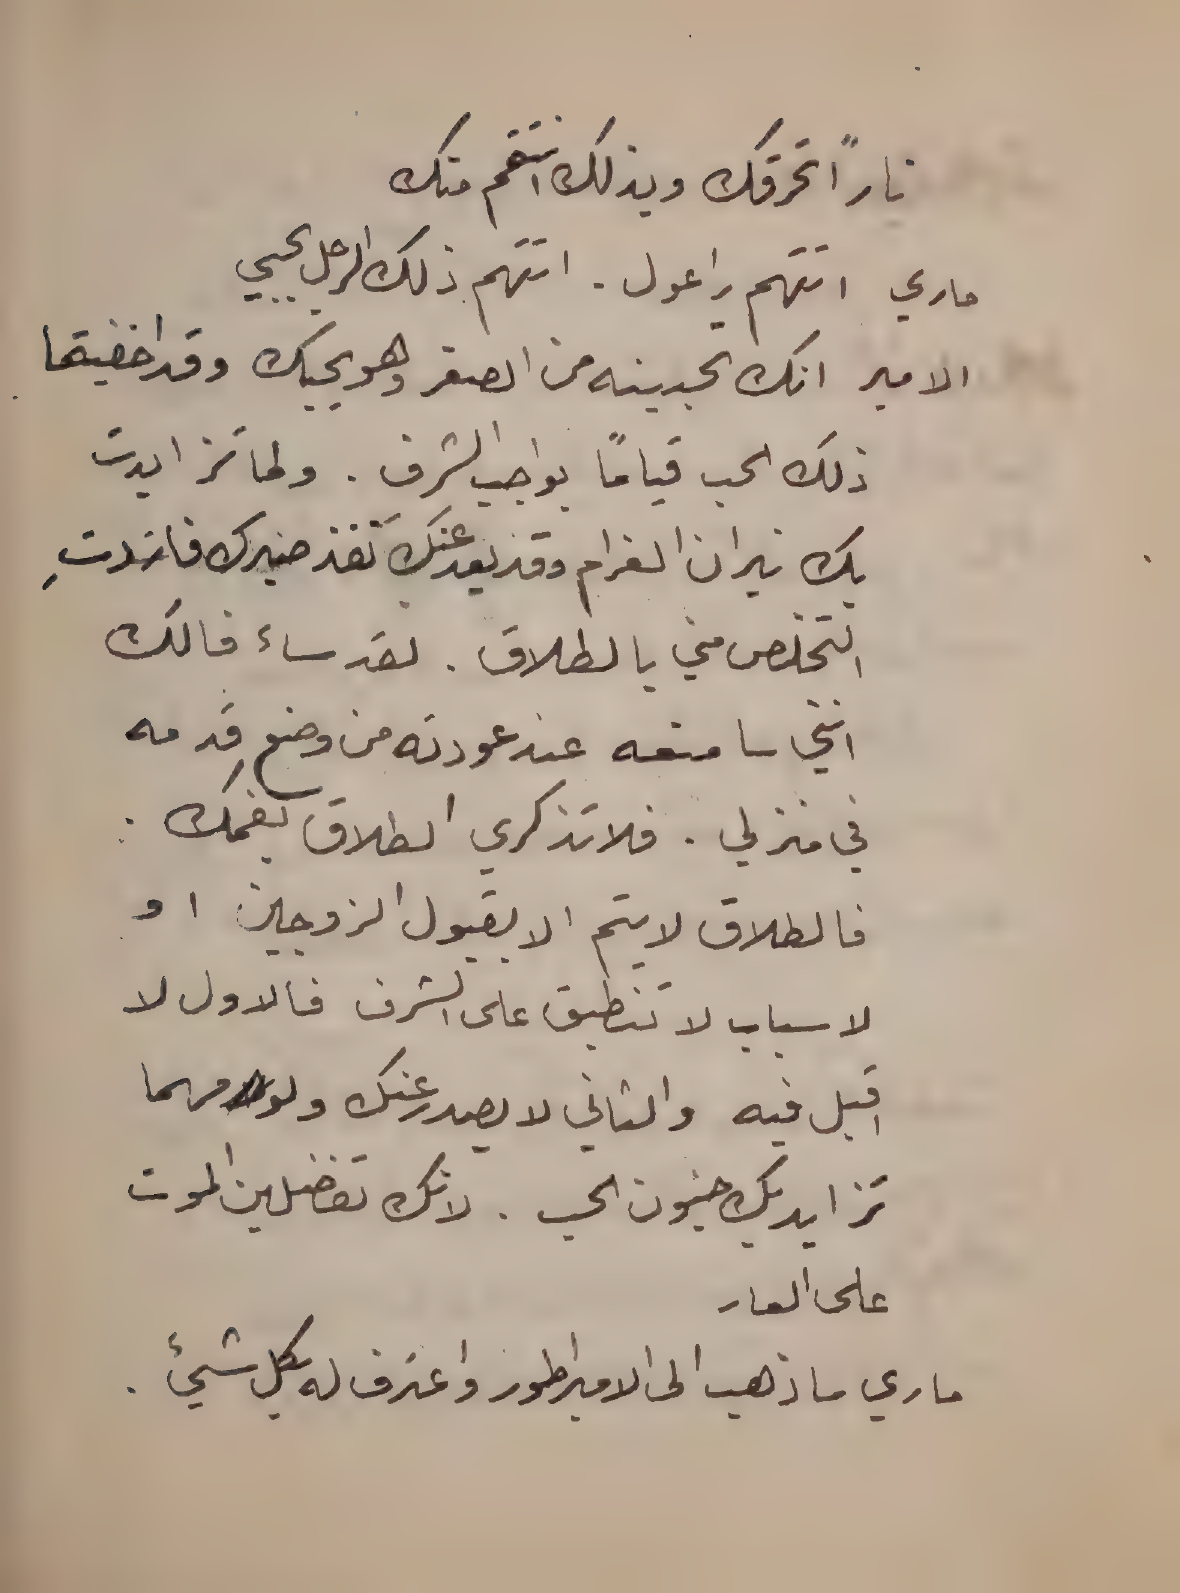 ناراً تحرقك وبذلك انتقم منك
ماري اتتهم راعول . اتتهم ذلك الرجل بحبي
الامير انك تحبينه من الصغر وهو يحبك وقد اخفيتما
ذلك الحب قياماً بواجب الشرف . ولما تزايدت
بك نيران الغرام وقد بعد عنك نفذ صبرك فاردتِ
التخلص مني بالطلاق . لقد ساء فالك
انني سامنعه عند عودته من وضع قدمه
في منزلي . فلا تذكري الطلاق بفمك .
فالطلاق لا يتم الا بقبول الزوجين او
لاسباب لا تنطبق على الشرف فالاول لا
اقبل فيه والثاني لا يصدر عنك ولو مهما
تزايد بك جنون الحب . لانك تفضلين الموت
على العار
ماري ساذهب الى الامبراطور واعترف له بكل شيئ .